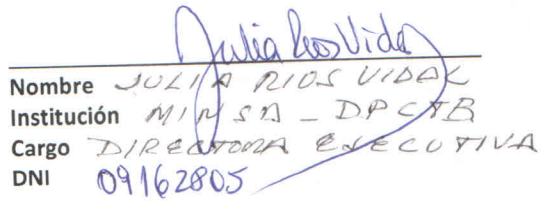 Julia Rios Vidal
Nombre JULIA RIOS VIDAL
Institución MINSA - DPCTB
Cargo DIRECTORA EJECUTIVA
DNI 09162805